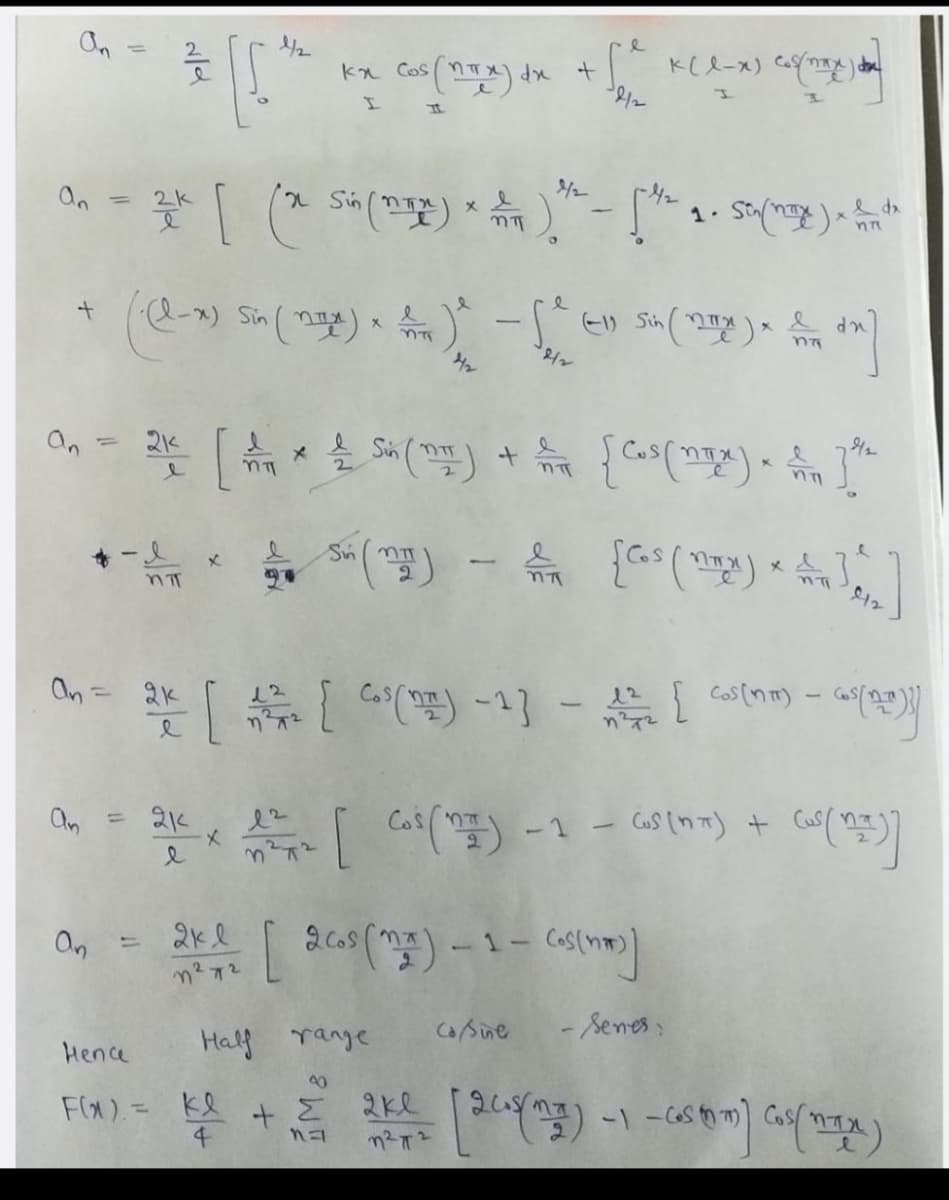 an = 2/l [ ∫₀^{l/2} kx cos(nπx/l) dx + ∫_{l/2}^{l} k(l-x) cos(nπx/l) dx ]
I II I II
an = 2k/l [ (x sin(nπx/l) × l/nπ)₀^{l/2} - ∫₀^{l/2} 1. sin(nπx/l) × l/nπ dx
+ ((l-x) sin(nπx/l) × l/nπ)_{l/2}^{l} - ∫_{l/2}^{l} (-1) sin(nπx/l) × l/nπ dx ]
an = 2k/l [ l/nπ × l/2 sin(nπ/2) + l/nπ { cos(nπx/l) × l/nπ }₀^{l/2}
- l/nπ × l/2 sin(nπ/2) - l/nπ { cos(nπx/l) × l/nπ }_{l/2}^{l} ]
an = 2k/l [ l²/n²π² { cos(nπ/2) - 1 } - l²/n²π² { cos(nπ) - cos(nπ/2) } ]
an = 2k/l × l²/n²π² [ cos(nπ/2) - 1 - cos(nπ) + cos(nπ/2) ]
an = 2kl/n²π² [ 2cos(nπ/2) - 1 - cos(nπ) ]
Hence Half range cosine - series:
F(x) = kl/4 + Σ_{n=1}^{∞} 2kl/n²π² [ 2cos(nπ/2) - 1 - cos(nπ) ] cos(nπx/l)